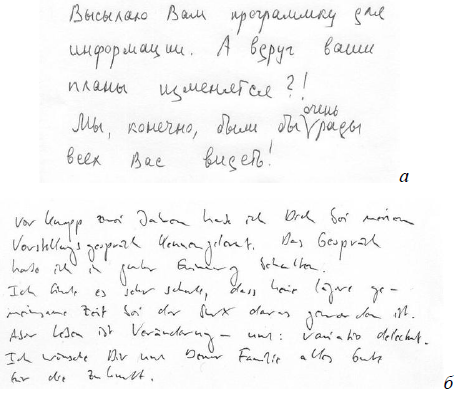 Высылаю Вам программку для
информации. А вдруг ваши
планы изменятся?!
очень
Мы, конечно, были бы рады
всех Вас видеть!
а
Vor knapp zwei Jahren habe ich Dich bei meinem
Vorstellungsgespräch kennengelernt. Das Gespräch
habe ich in guter Erinnerung behalten.
Ich finde es sehr schade, dass keine längere ge-
meinsame Zeit bei der daraus geworden ist.
Aber Leben ist Veränderung – und: variatio delectat.
Ich wünsche Dir und Deiner Familie alles Gute
für die Zukunft.
б